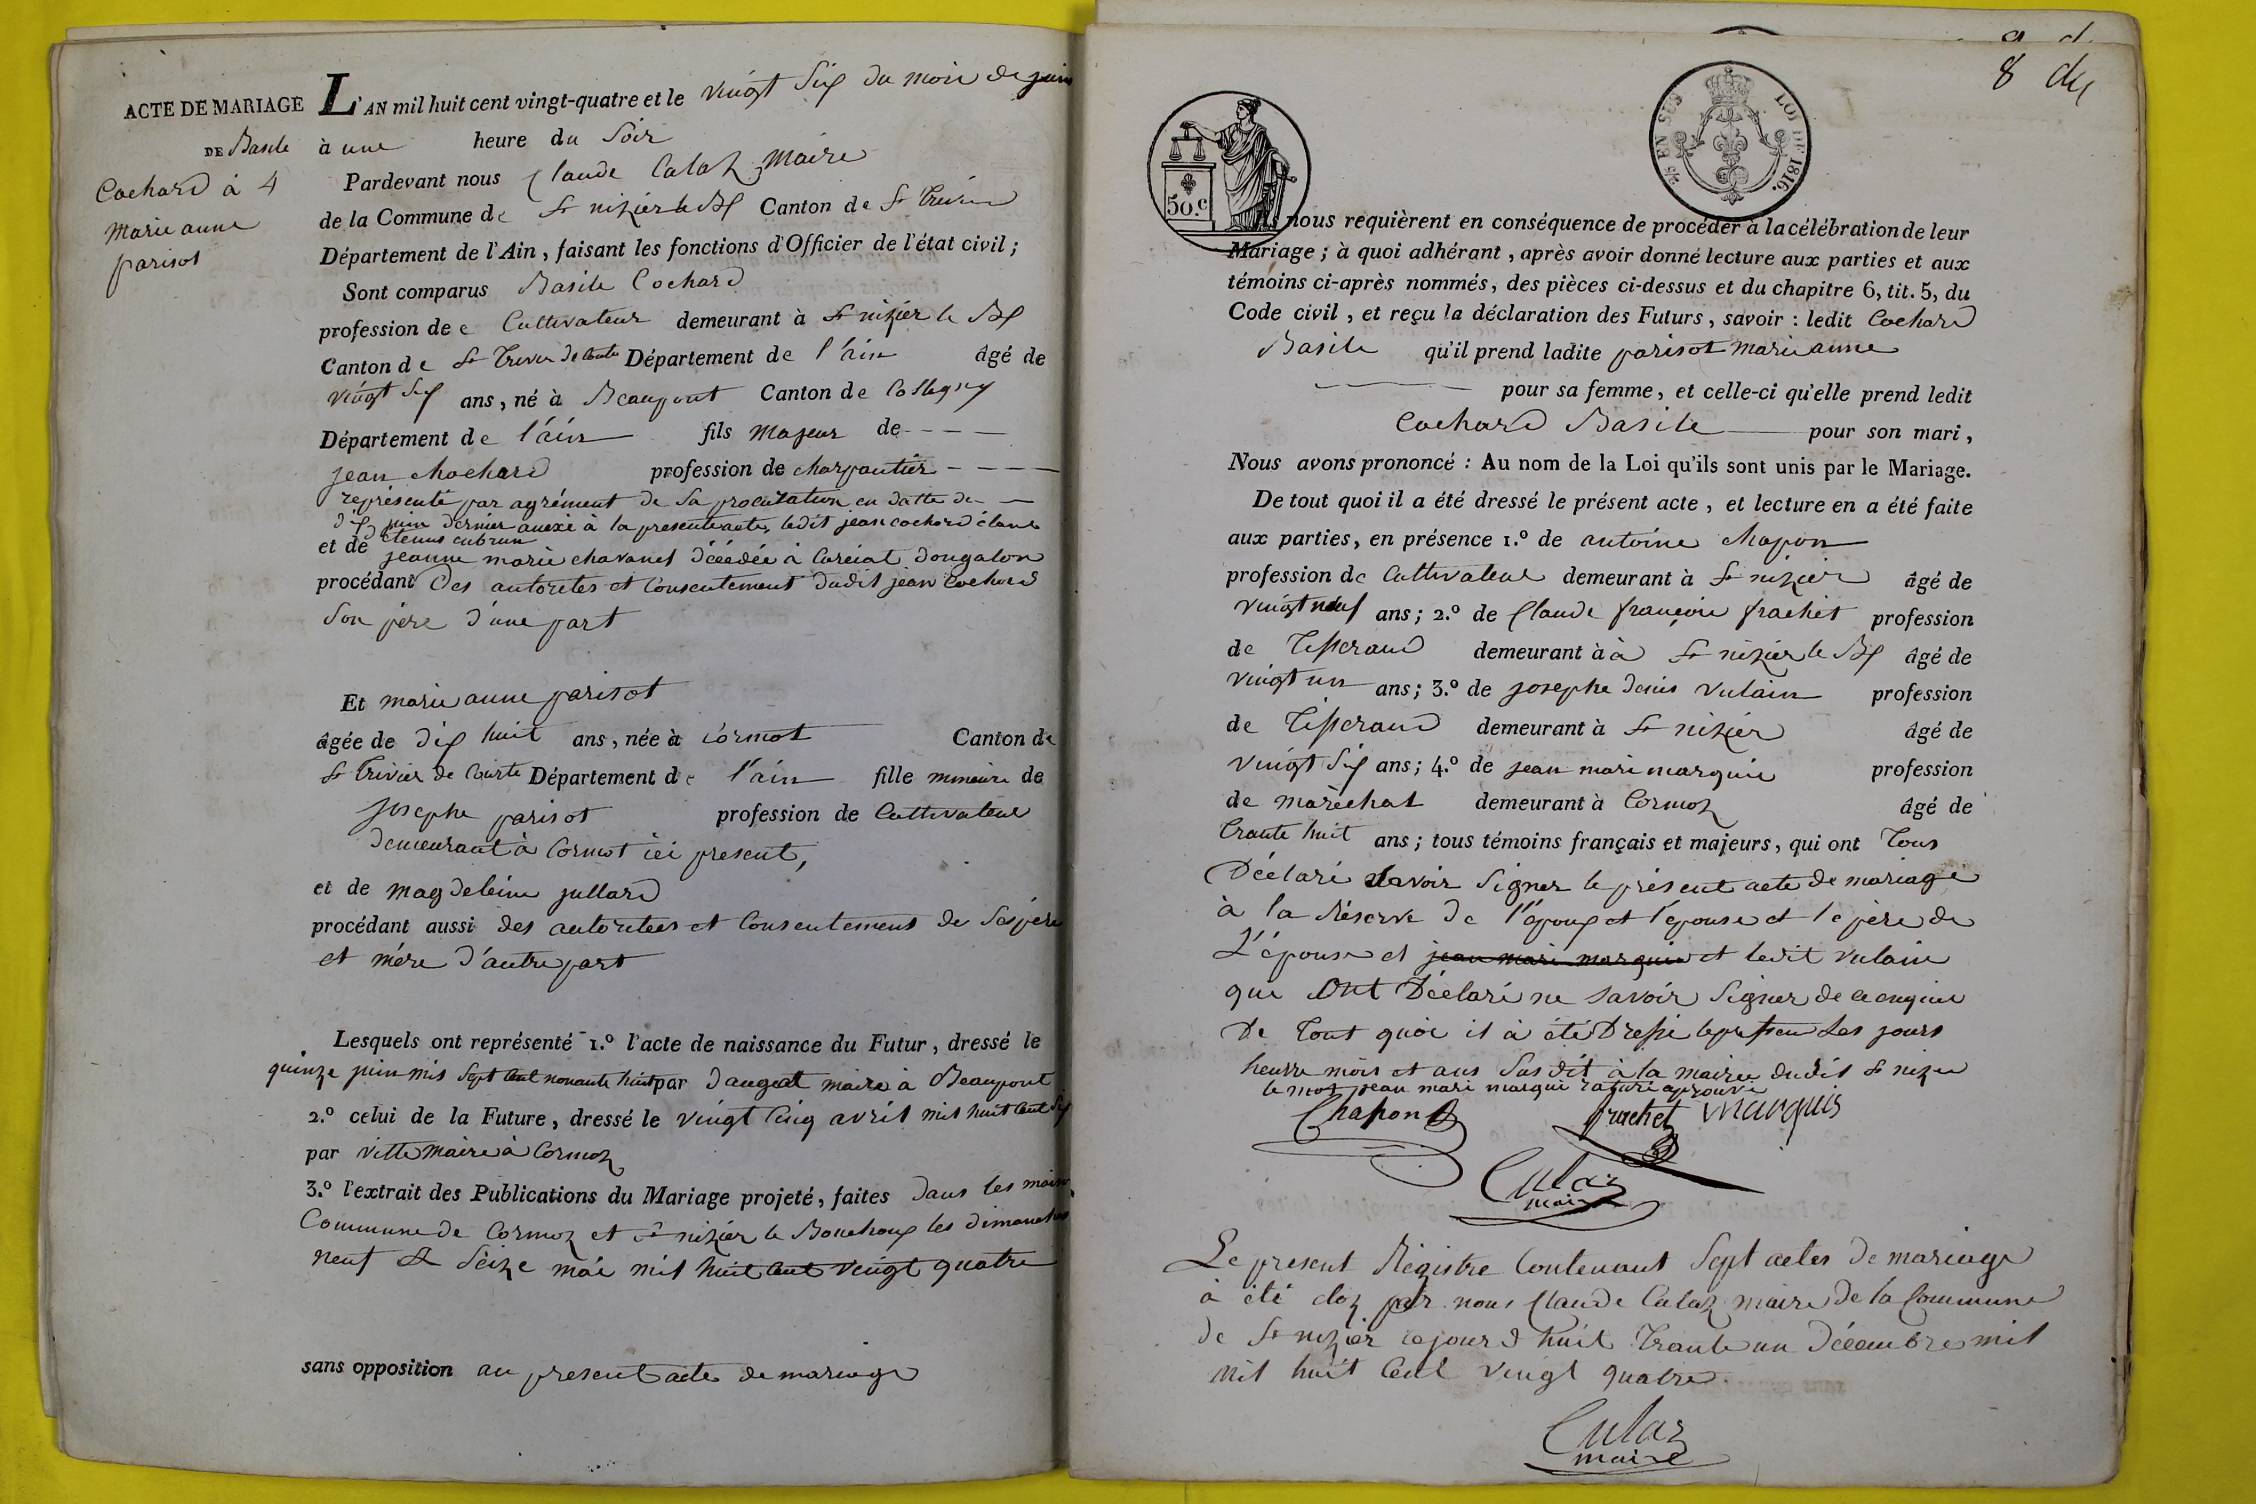 ACTE DE MARIAGE
DE Basile
Cochard à 4
Marie anne
parisot
L'AN mil huit cent vingt-quatre et le vingt Six du mois de juin
à une heure du Soir
Pardevant nous Claude Calaz Maire
de la Commune de St nizier le Bx Canton de St Trivier
Département de l'Ain, faisant les fonctions d'Officier de l'état civil;
Sont comparus Basile Cochard
profession de Cultivateur demeurant à St nizier le Bx
Canton de St Trivier de Courte Département de l'ain âgé de
vingt Six ans, né à Beaupont Canton de Collegny
Département de l'ain fils Majeur de
jean chochard profession de charpantier
représenté par agrément de Sa procuration en datte du
dix juin dernier anexé à la presente acte, ledit jean cochard
et de
jeanne marie chavanel décédée à
procédant Des autorites et Consentement dudit jean Cochard
Son père d'une part
Et marie anne parisot
âgée de dix huit ans, née à cormot Canton de
St Trivier de Courte Département de l'ain fille mineure de
josephe parisot profession de Cultivateur
demeurant à Cormot ici present,
et de magdeleine jullard
procédant aussi des autoritees et Consentement de Ses père
et mére d'autre part
Lesquels ont représenté 1.º l'acte de naissance du Futur, dressé le
quinze juin mil Sept Cent nonante huit par daugeat maire à Beaupont
2.º celui de la Future, dressé le vingt Cinq avril mil huit Cent Six
par vitte maire à Cormoz
3.º l'extrait des Publications du Mariage projeté, faites dans les
Commune de Cormoz et St nizier le Bouchoux les dimanches
neuf & Seize mai mil huit Cent Veingt quatre
sans opposition au present acte de mariage
8 du
50.c
EN SUS
LOI DE 1816.
Ils nous requièrent en conséquence de procéder à la célébration de leur
Mariage; à quoi adhérant, après avoir donné lecture aux parties et aux
témoins ci-après nommés, des pièces ci-dessus et du chapitre 6, tit. 5, du
Code civil, et reçu la déclaration des Futurs, savoir : ledit Cochard
Basile qu'il prend ladite parisot marie anne
pour sa femme, et celle-ci qu'elle prend ledit
Cochard Basile pour son mari,
Nous avons prononcé : Au nom de la Loi qu'ils sont unis par le Mariage.
De tout quoi il a été dressé le présent acte, et lecture en a été faite
aux parties, en présence 1.º de antoine chapon
profession de Cultivateur demeurant à St nizier âgé de
vingt neuf ans; 2.º de Claude françois frachet profession
de Tisserand demeurant à à St nizier le Bx âgé de
vingt un ans; 3.º de josephe denis Vulain profession
de Tisserand demeurant à St nizier âgé de
vingt Six ans; 4.º de jean mari marquis profession
de maréchal demeurant à Cormoz âgé de
trante huit ans; tous témoins français et majeurs, qui ont Tous
Déclaré Savoir Signer le présent acte de mariage
à la Réserve de l'époux et l'épouse et le père de
L'épouse et jean mari marquis et ledit Vulain
que ont Déclaré ne Savoir Signer de ce enquis
De Tout quoi il à été Dressé le present Les jours
heurre mois et ans Sus dit à la mairie dudit St nizier
le mot jean mari marqui raturé aprouvé
Chapon
frachet
Marquis
Culaz
maire
Le present Régistre Contenant Sept actes de mariage
à été cloz par nous Claude Culaz maire de la Commune
de St nizier cejourd huit Trante un Décembre mil
mil huit Cent vingt quatre.
Culaz
maire